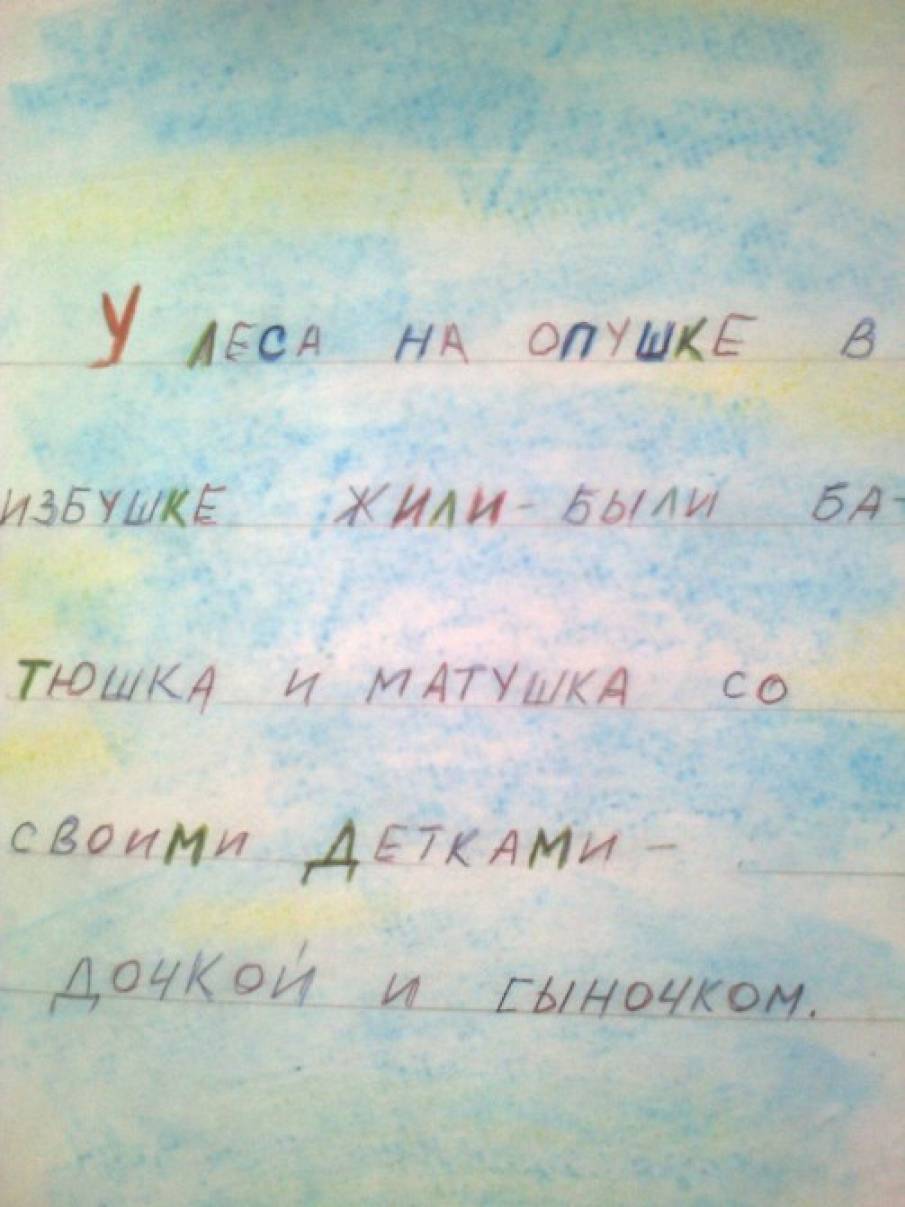 У ЛЕСА НА ОПУШКЕ В
ИЗБУШКЕ ЖИЛИ-БЫЛИ БА-
ТЮШКА И МАТУШКА СО
СВОИМИ ДЕТКАМИ –
ДОЧКОЙ И СЫНОЧКОМ.